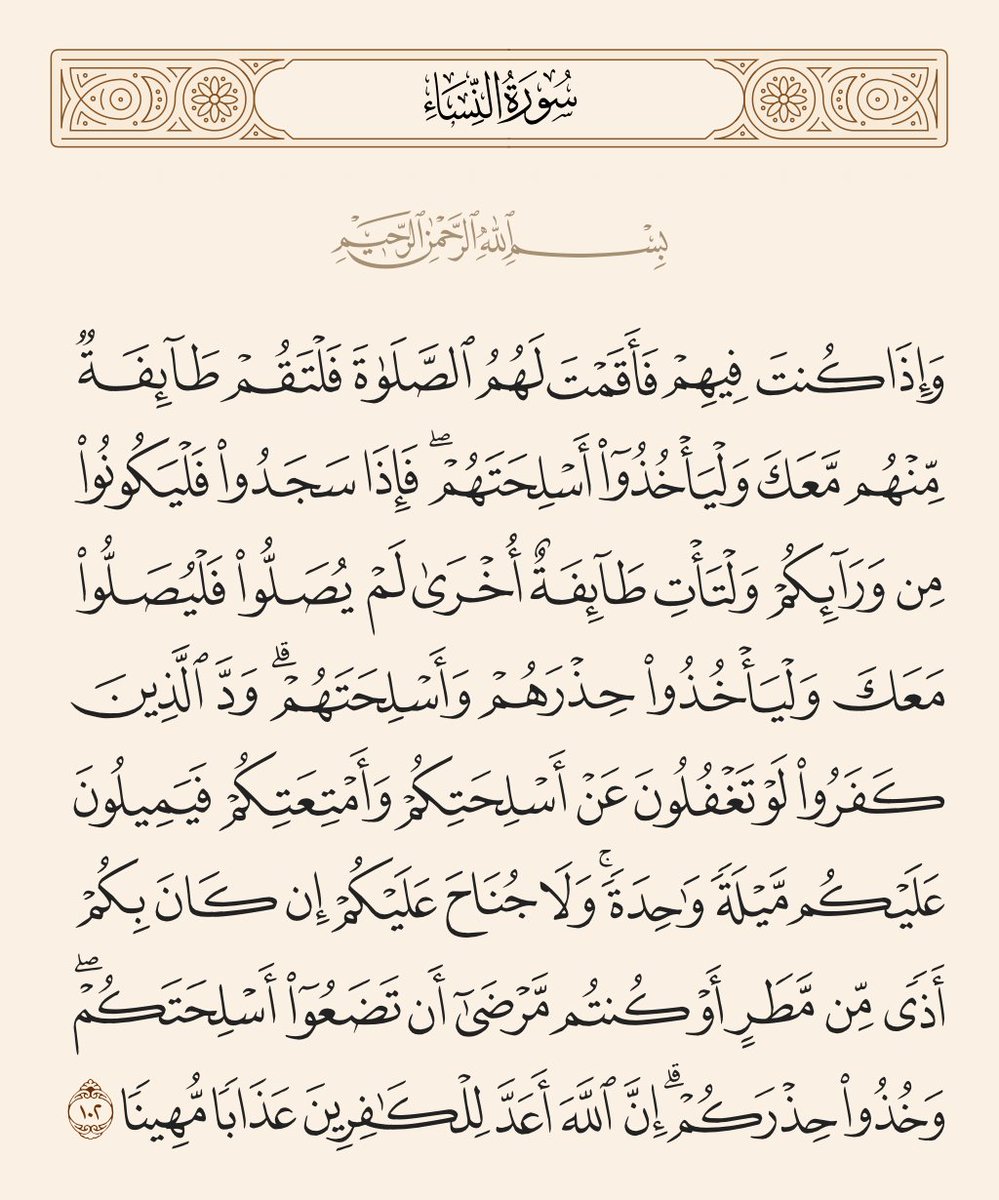 سُورَةُ النِّسَاءِ
بِسْمِ ٱللَّهِ ٱلرَّحْمَٰنِ ٱلرَّحِيمِ
وَإِذَا كُنتَ فِيهِمْ فَأَقَمْتَ لَهُمُ ٱلصَّلَوٰةَ فَلْتَقُمْ طَآئِفَةٌ
مِّنْهُم مَّعَكَ وَلْيَأْخُذُوٓا۟ أَسْلِحَتَهُمْۖ فَإِذَا سَجَدُوا۟ فَلْيَكُونُوا۟
مِن وَرَآئِكُمْ وَلْتَأْتِ طَآئِفَةٌ أُخْرَىٰ لَمْ يُصَلُّوا۟ فَلْيُصَلُّوا۟
مَعَكَ وَلْيَأْخُذُوا۟ حِذْرَهُمْ وَأَسْلِحَتَهُمْۗ وَدَّ ٱلَّذِينَ
كَفَرُوا۟ لَوْ تَغْفُلُونَ عَنْ أَسْلِحَتِكُمْ وَأَمْتِعَتِكُمْ فَيَمِيلُونَ
عَلَيْكُم مَّيْلَةً وَٰحِدَةًۚ وَلَا جُنَاحَ عَلَيْكُمْ إِن كَانَ بِكُمْ
أَذًى مِّن مَّطَرٍ أَوْ كُنتُم مَّرْضَىٰٓ أَن تَضَعُوٓا۟ أَسْلِحَتَكُمْۖ
وَخُذُوا۟ حِذْرَكُمْۗ إِنَّ ٱللَّهَ أَعَدَّ لِلْكَٰفِرِينَ عَذَابًا مُّهِينًا ١٠٢